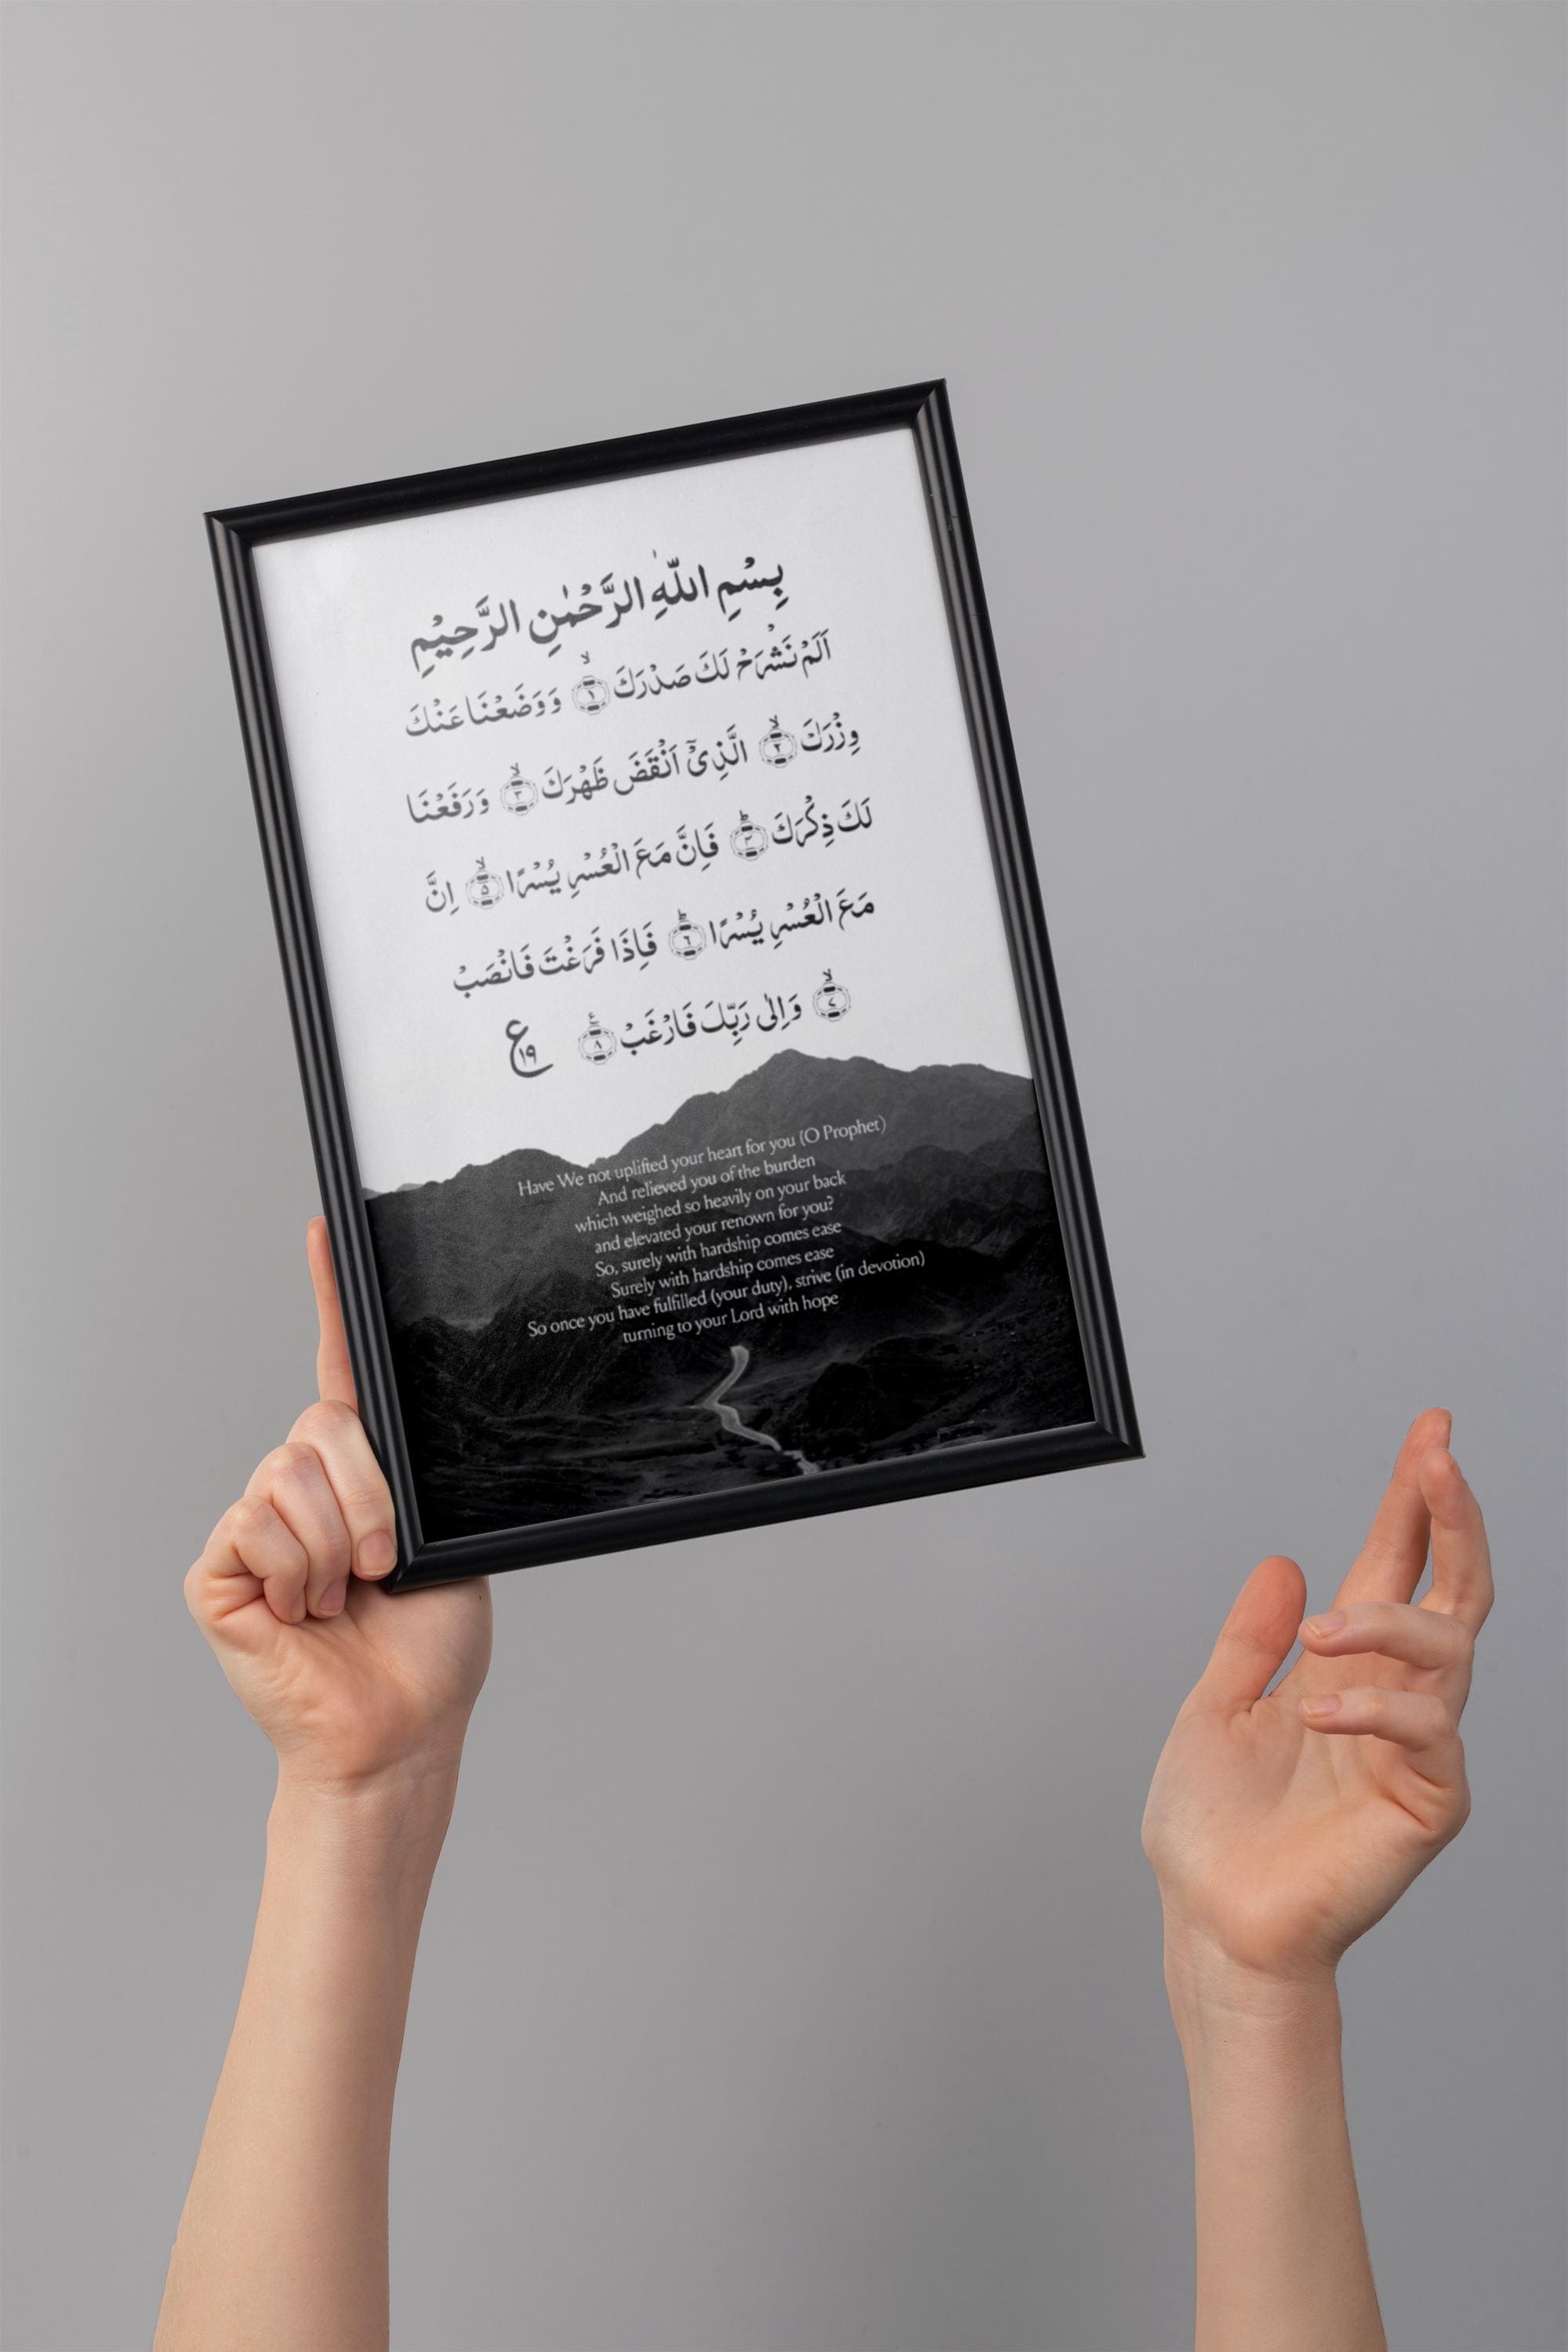 بِسْمِ اللّٰهِ الرَّحْمٰنِ الرَّحِيْمِ
اَلَمْ نَشْرَحْ لَكَ صَدْرَكَ ۙ‏﴿۱﴾ وَوَضَعْنَا عَنْكَ
وِزْرَكَ ۙ‏﴿۲﴾ الَّذِىْۤ اَنْقَضَ ظَهْرَكَ ۙ‏﴿۳﴾ وَرَفَعْنَا
لَكَ ذِكْرَكَ ؕ‏﴿۴﴾ فَاِنَّ مَعَ الْعُسْرِ يُسْرًا ۙ‏﴿۵﴾ اِنَّ
مَعَ الْعُسْرِ يُسْرًا ؕ‏﴿۶﴾ فَاِذَا فَرَغْتَ فَانْصَبْ
ۙ‏﴿۷﴾ وَاِلٰى رَبِّكَ فَارْغَبْ ﴿۸﴾ ع ۱۹
Have We not uplifted your heart for you (O Prophet)
And relieved you of the burden
which weighed so heavily on your back
and elevated your renown for you?
So, surely with hardship comes ease
Surely with hardship comes ease
So once you have fulfilled (your duty), strive (in devotion)
turning to your Lord with hope